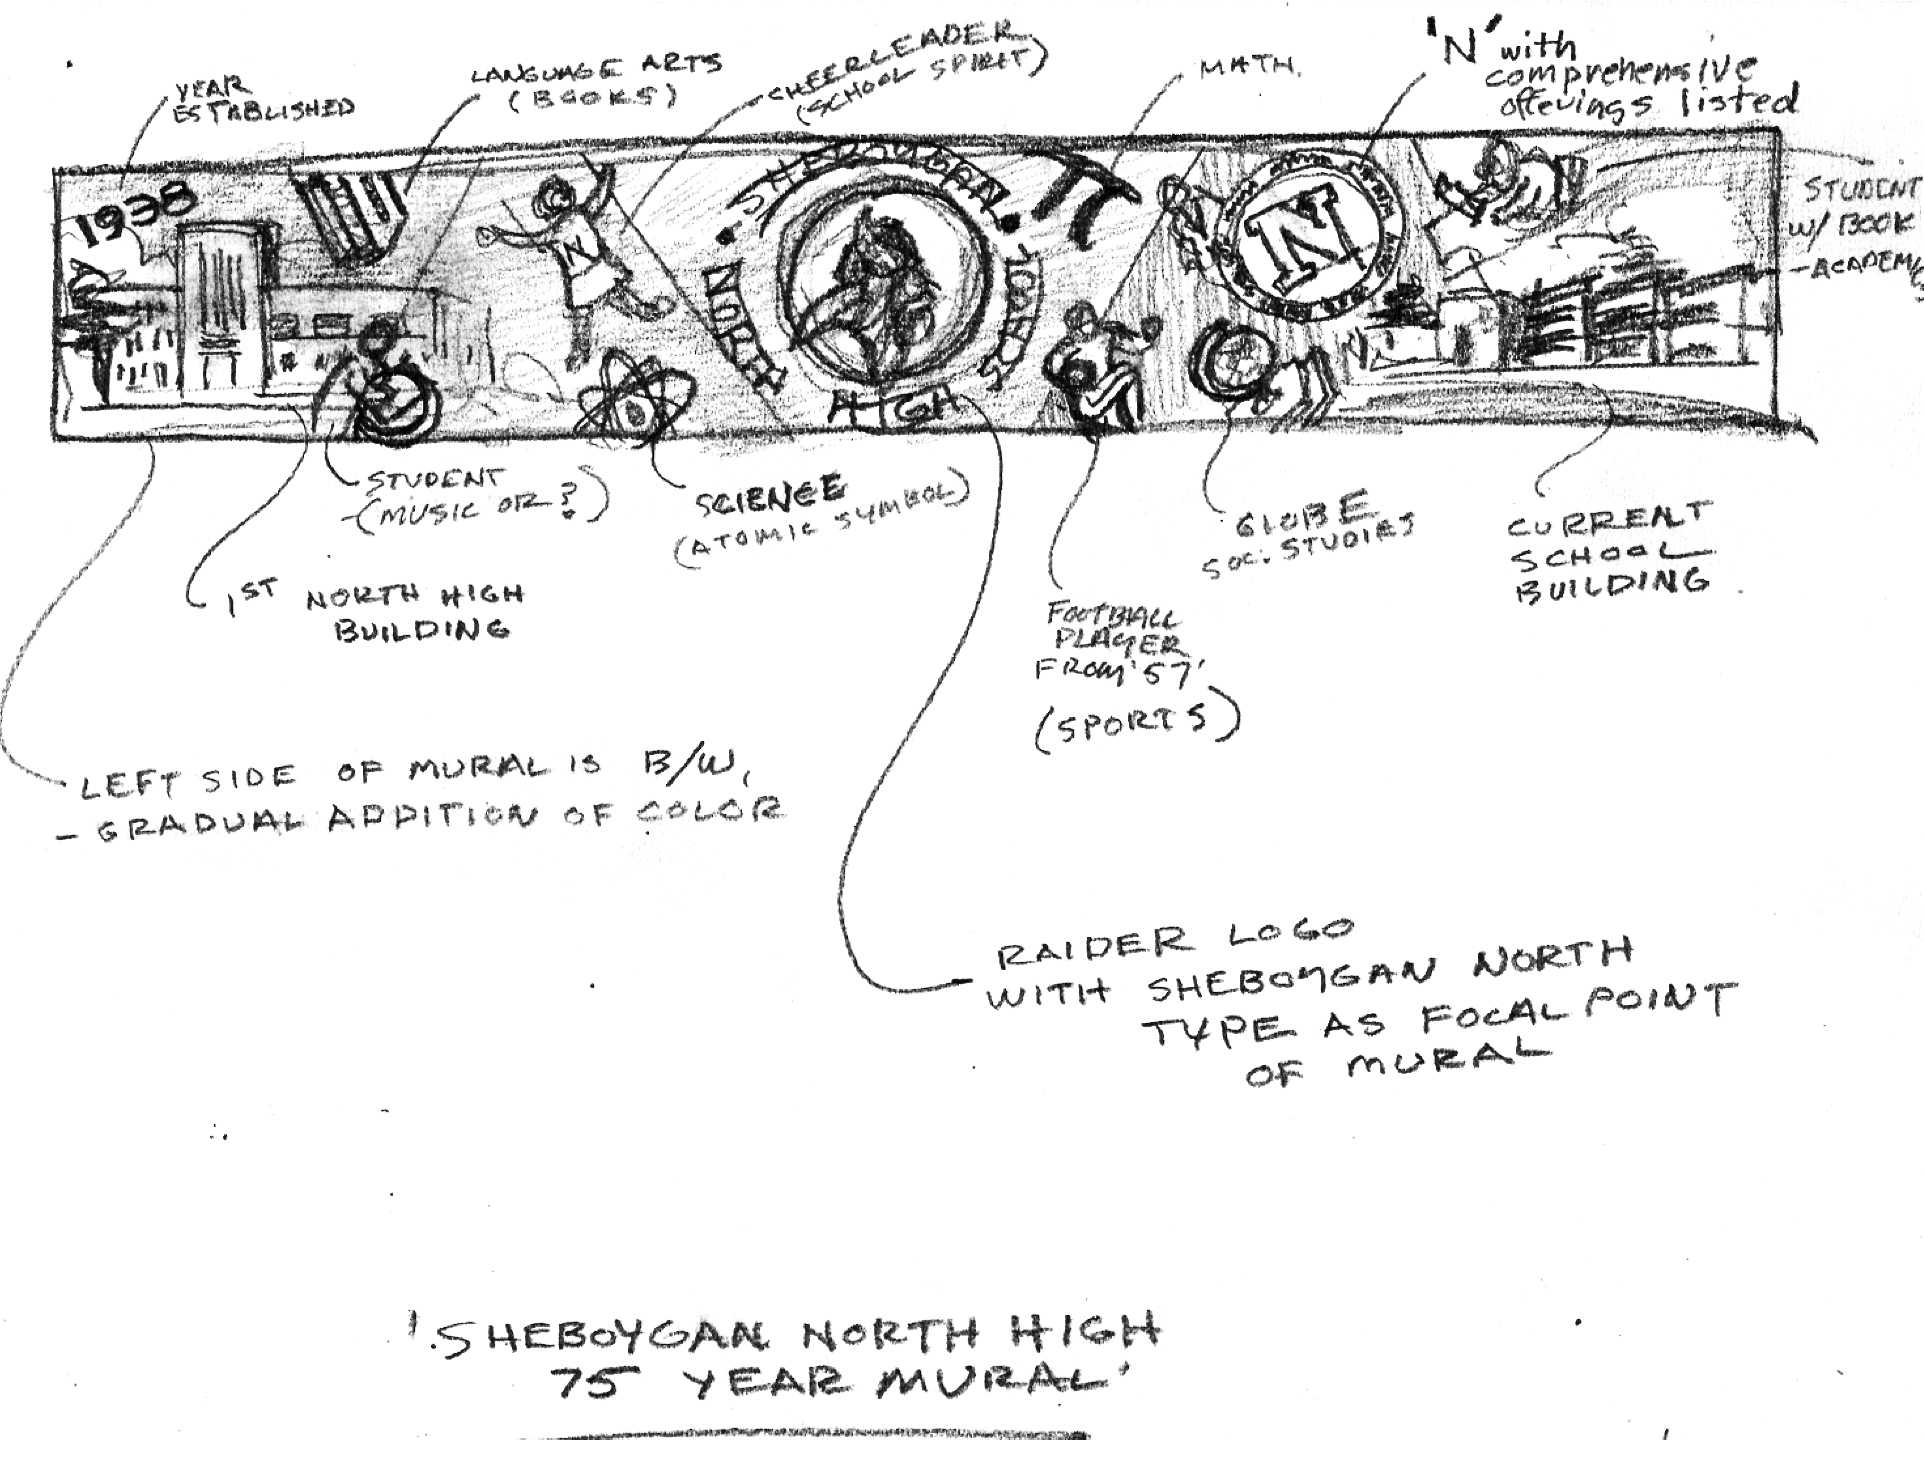 YEAR
ESTABLISHED
LANGUAGE ARTS
(BOOKS)
CHEERLEADER
(SCHOOL SPIRIT)
MATH.
'N' with
comprehensive
offerings listed
1938
N
SHEBOYGAN
NORTH
HIGH
N
STUDENT
W/ BOOK
-ACADEMICS
STUDENT
-(MUSIC OR ?)
SCIENCE
(ATOMIC SYMBOL)
GLOBE
SOC. STUDIES
CURRENT
SCHOOL
BUILDING
1ST NORTH HIGH
BUILDING
FOOTBALL
PLAYER
FROM '57'
(SPORTS)
LEFT SIDE OF MURAL IS B/W,
- GRADUAL ADDITION OF COLOR
RAIDER LOGO
WITH SHEBOYGAN NORTH
TYPE AS FOCAL POINT
OF MURAL
'SHEBOYGAN NORTH HIGH
75 YEAR MURAL'